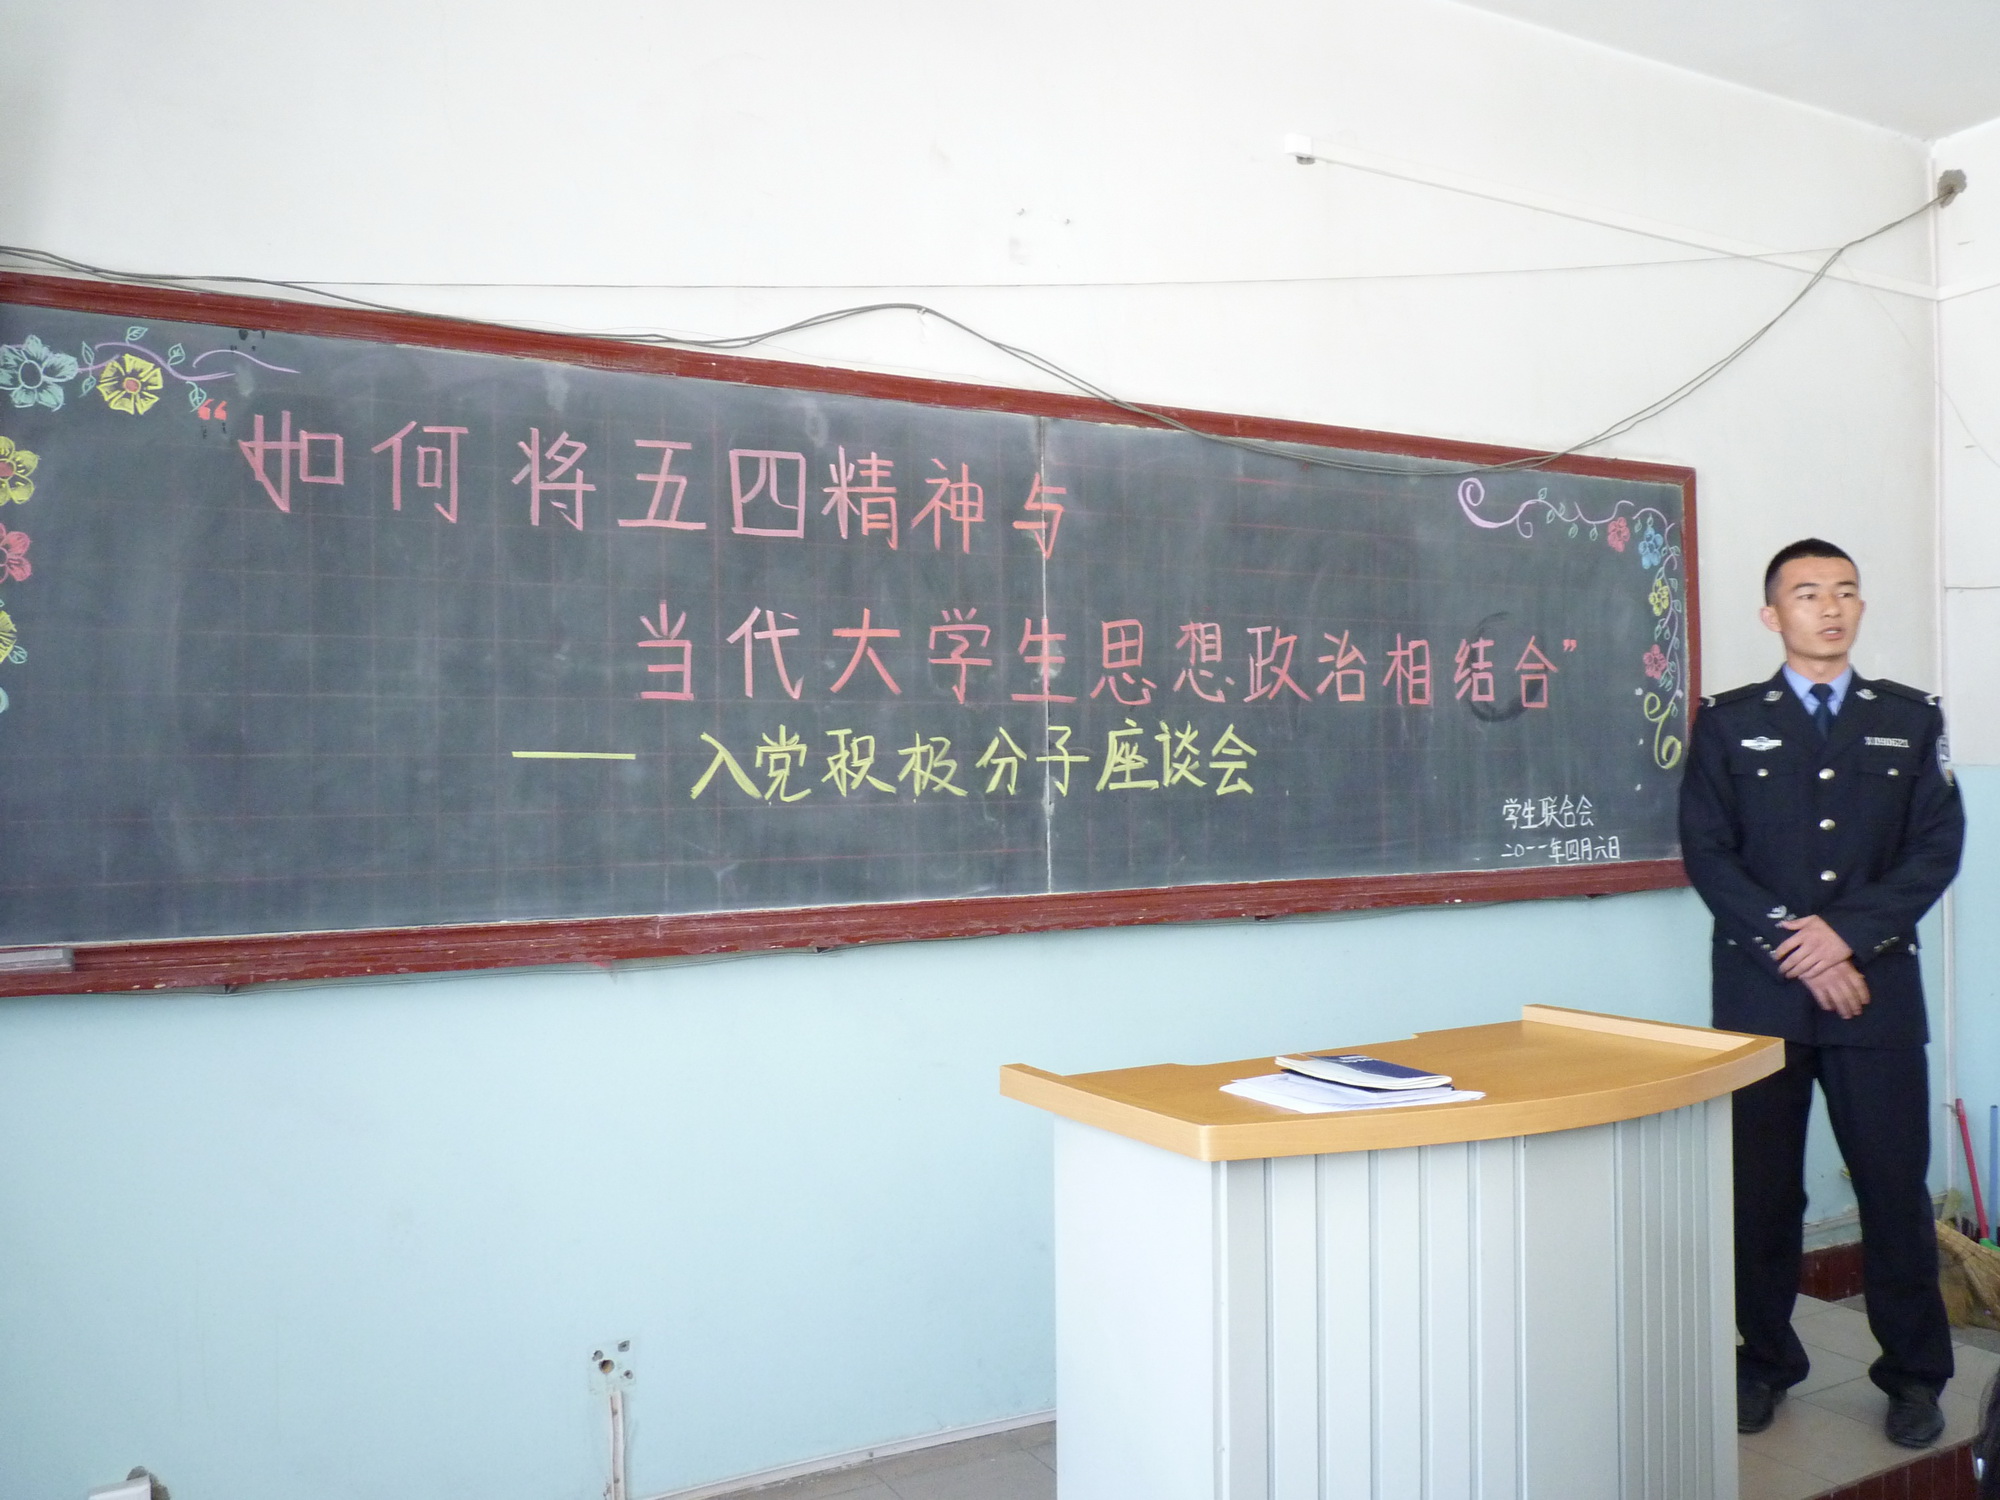 “如何将五四精神与
当代大学生思想政治相结合”
——入党积极分子座谈会
学生联合会
二〇一一年四月六日